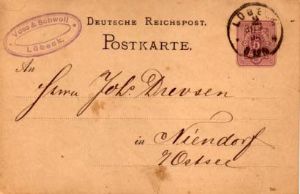 Voss & Schwoll
Lübeck.
DEUTSCHE REICHSPOST.
LÜBECK
POSTKARTE.
An
Herrn Joh. Drevsen
in Niendorf
Ostsee